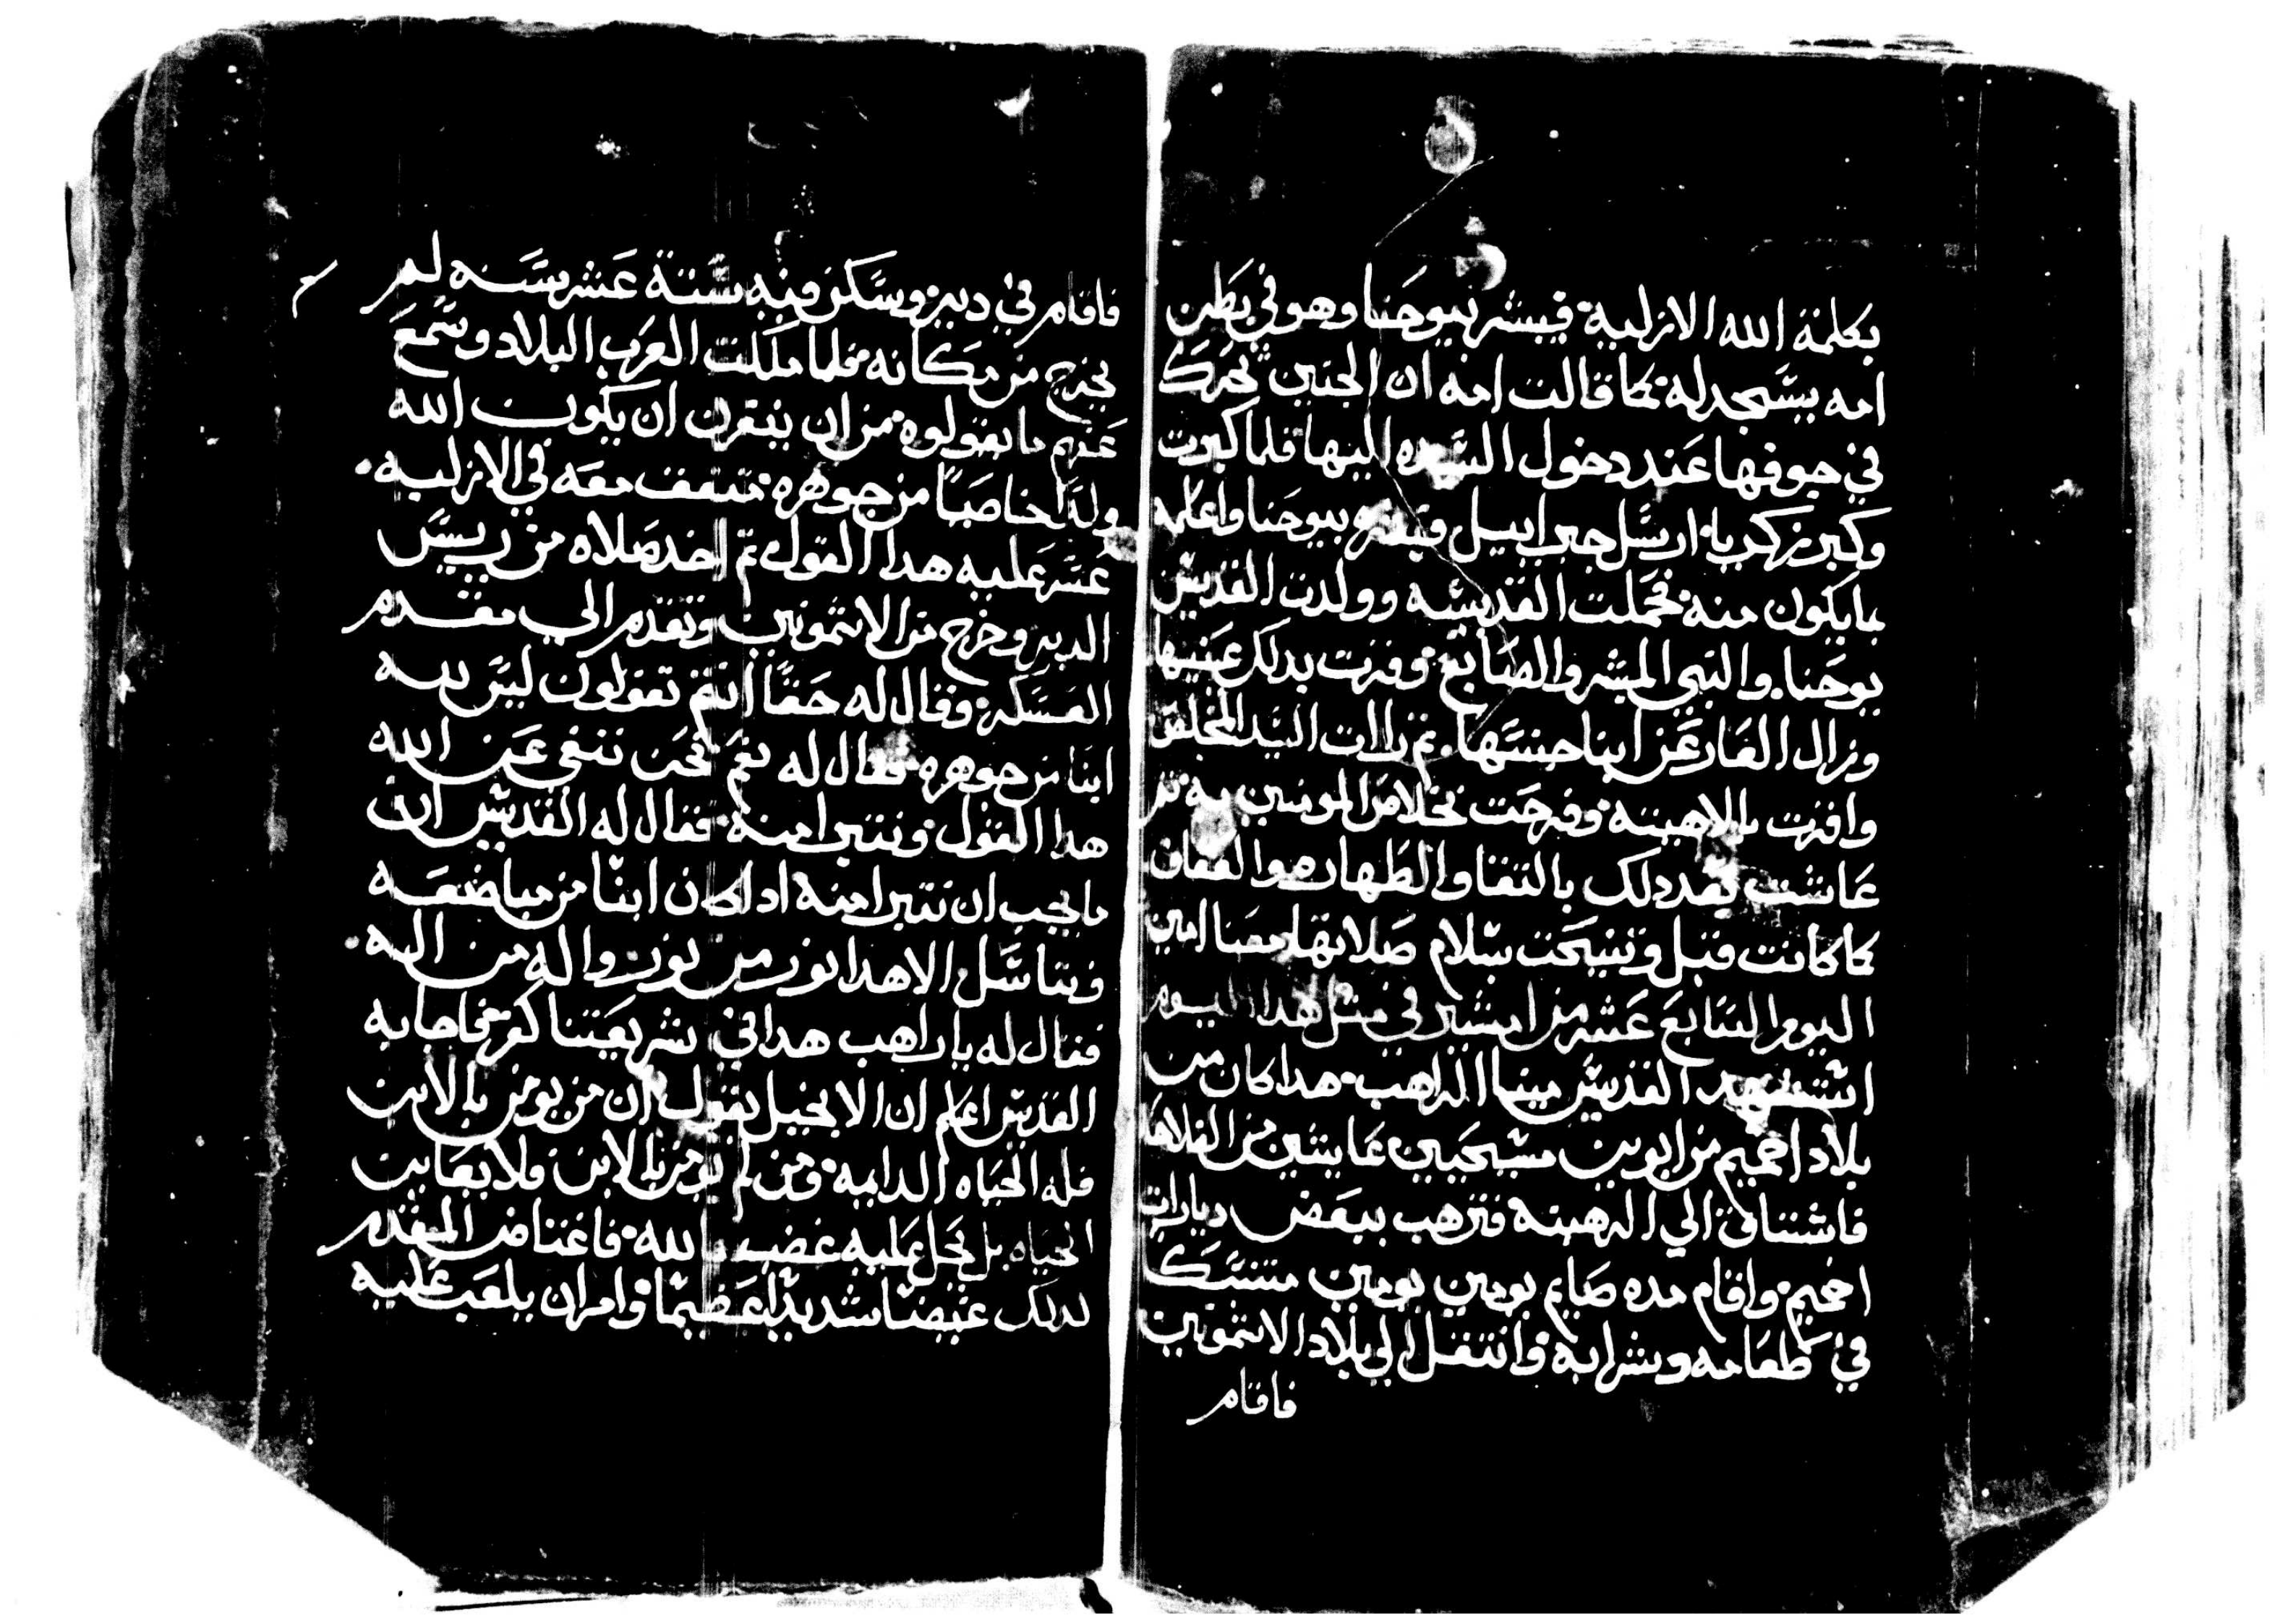 بكلمة الله الازلية فيبشر بيوحنا وهو في بطن
امه يسجد له كما قالت امه ان الجنين تحرك
في جوفها عند دخول السيده اليها فلما كبرت
وكبر زكريا ارسل جبراييل وبشره بيوحنا واعلمه
بما يكون منه فحملت القديسه وولدت القديس
يوحنا والنبي المبشر والصابغ وقرت بدلك عينيها
وزال العار عن ابنا جنسها ثم رات السيد المخلص
واقرت بالاهيته وفرحت بخلاص المومنين به ثم
عاشت بعد دلك بالتقا والطهاره والعفاف
كما كانت قبل وتنيحت بسلام صلاتها معنا امين
اليوم السابع عشر من امشير في مثل هدا اليوم
استشهد القديس مينا الراهب هدا كان من
بلاد اخميم من ابوين مسيحيين عايشين من الفلاحه
فاشتاق الي الرهبنه فترهب ببعض ديارات
اخميم واقام مده صايم يومين يومين متنسكا
في طعامه وشرابه وانتقل الي بلاد الاشمونين
فاقام
فاقام في دير وسكن فيه ستة عشر سنه لم
يخرج من مكانه فلما ملكت العرب البلاد وسمع
عنهم ما يقولوه من ان ينقرن ان يكون الله
ولدا خاصيا من جوهره متفق معه في الازليه
عسر عليه هدا القول ثم اخد صلاه من رييس
الدير وخرج من الاشمونين وتقدم الي مقدم
العسكر وقال له حقا انتم تقولون ليس لله
ابنا من جوهره فقال له نعم نحن ننفي عن الله
هدا القول ونتبرا منه فقال له القديس ان
ما يجب ان نتبرا منه ادا كان ابنا من مباضعه
وتناسل الا هدا نور من نور واله من اله
فقال له يا راهب هدا في شريعتنا كفر فاجابه
القديس اعلم ان الانجيل يقول ان من يومن بالابن
فله الحياه الدايمه ومن لم يومن بالابن فلا يعاين
الحياه بل تحل عليه غضب الله فاغتاض المقدم
لدلك غيضا شديدا عظيما وامر ان يلعب عليه